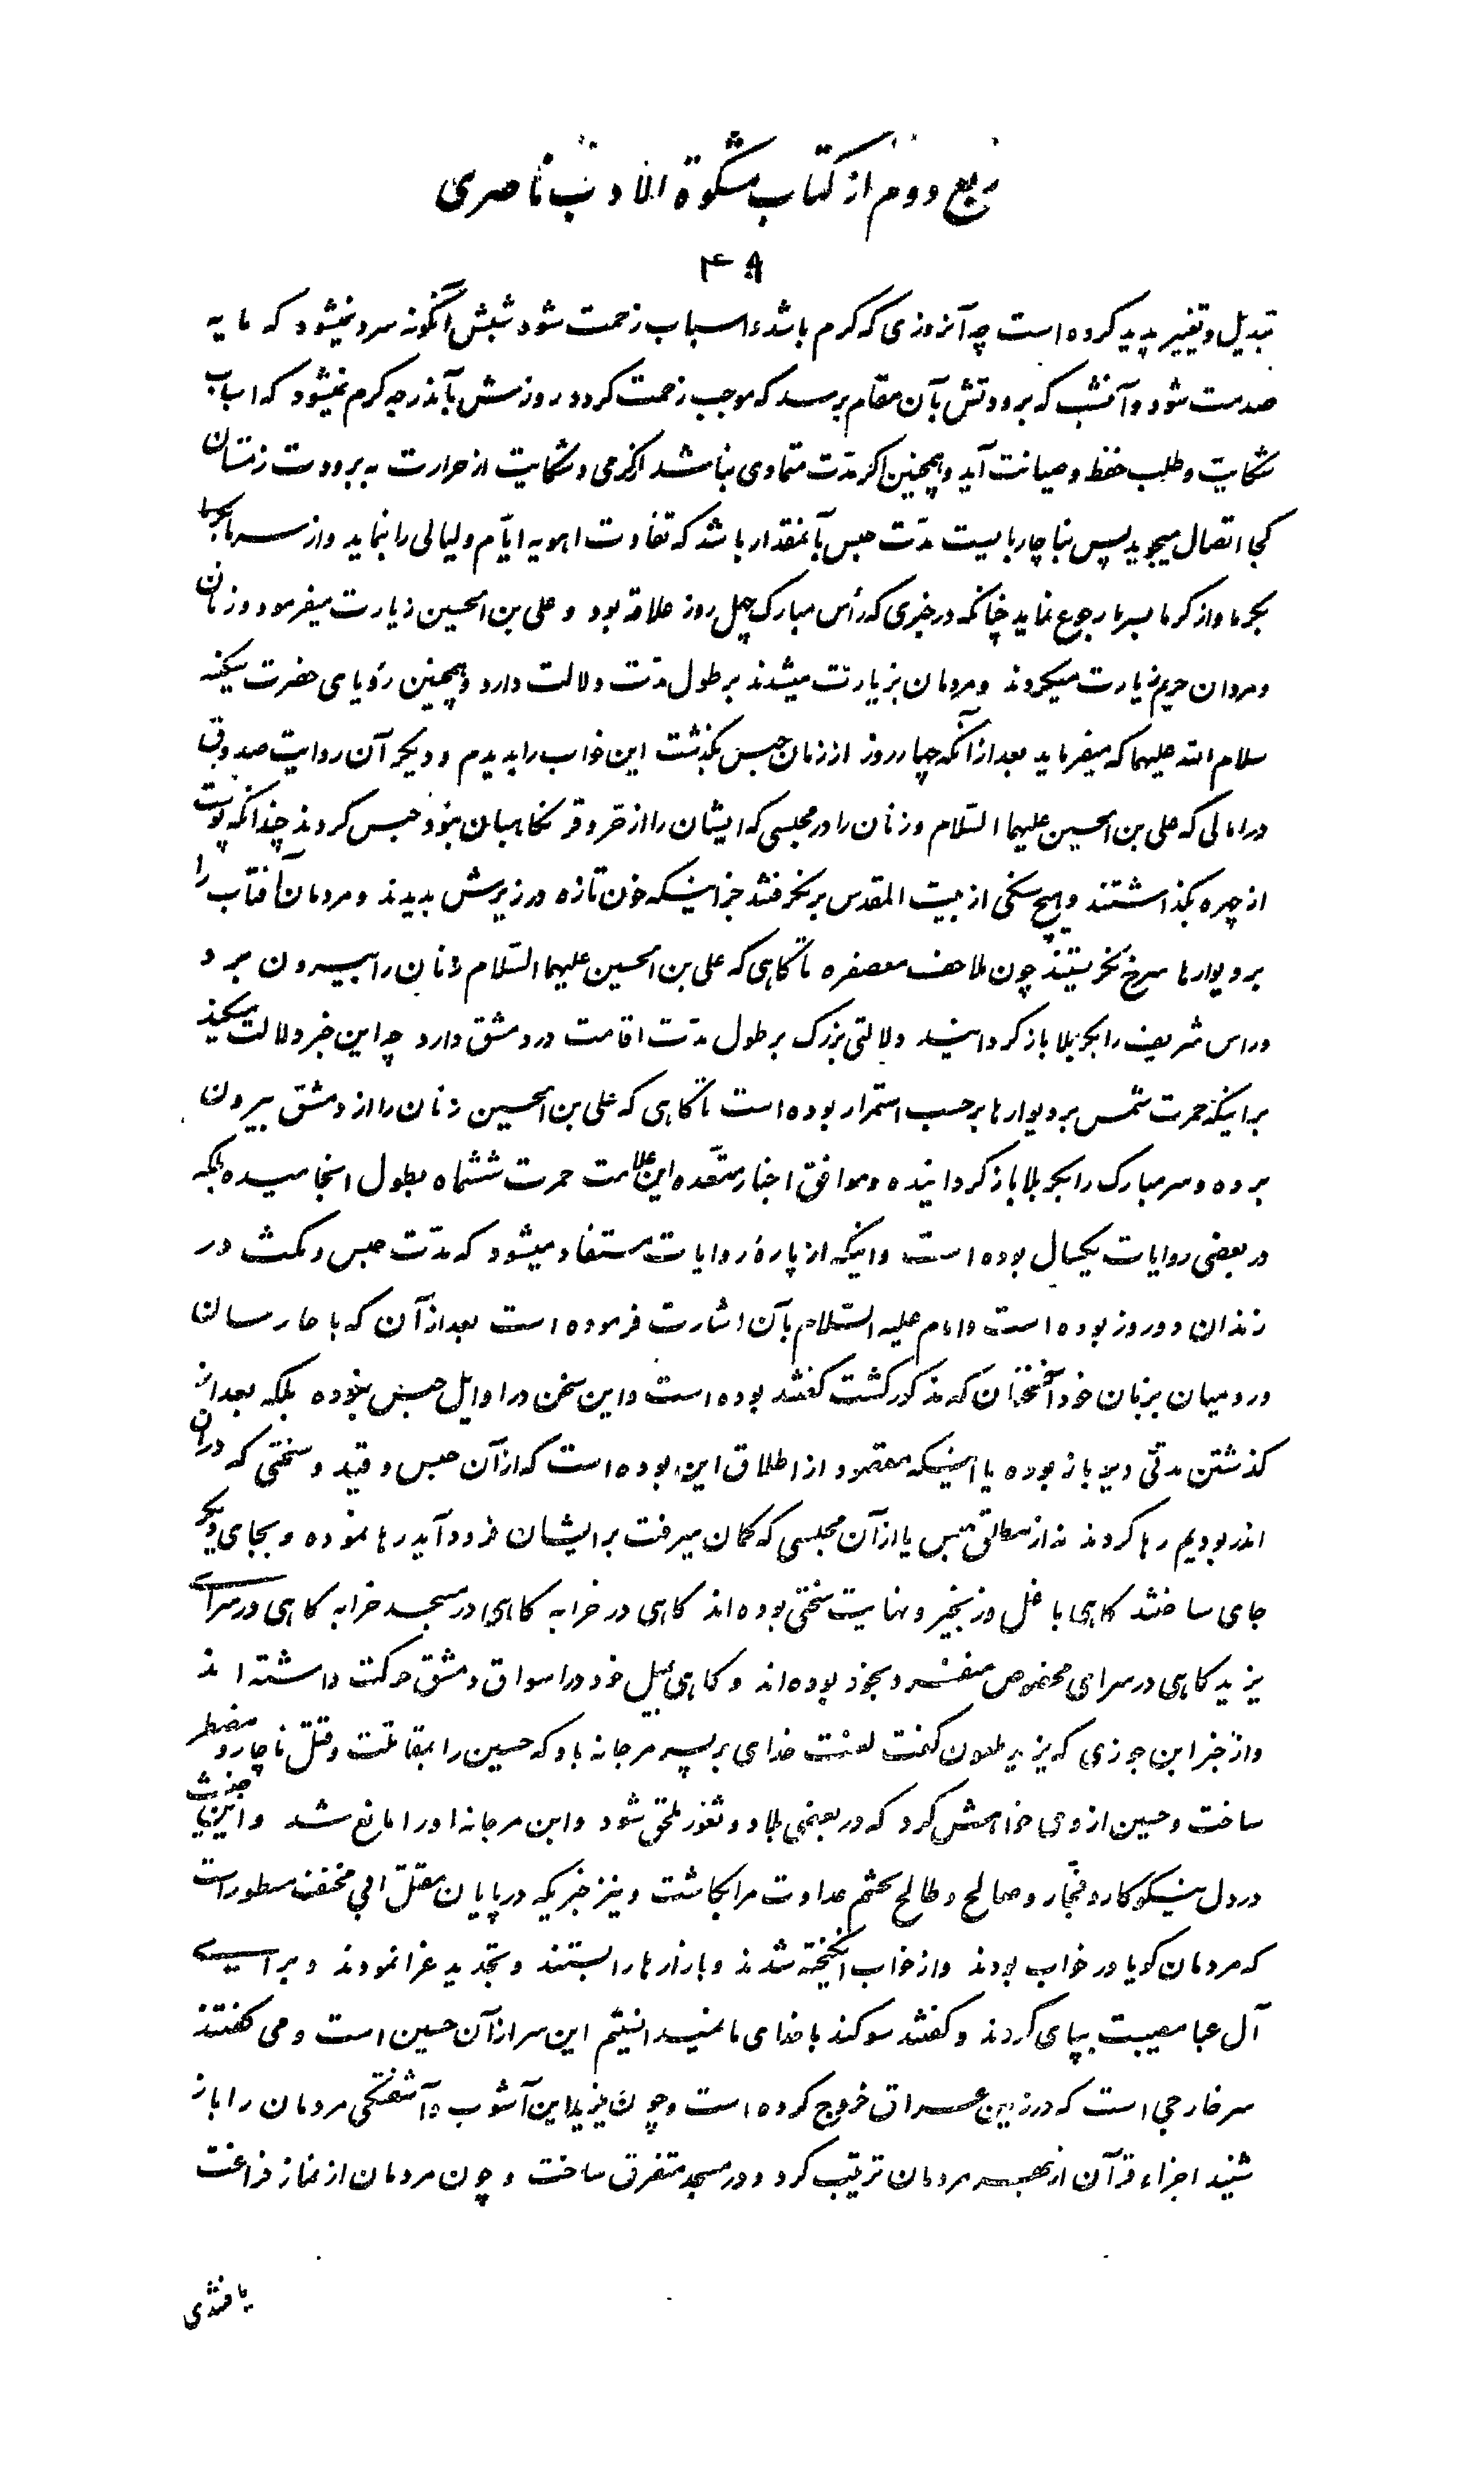 ربع دوم از کتاب مشکوة الادب ناصری
۴۸
تبدیل و تغییر پدید کرده است چه آنروزی که گرم باشد و اسباب زحمت شود شبش آنگونه سرد نمیشود که مایه
صدمت شود و آنشب که برودتش بآن مقام برسد که موجب زحمت گردد روزش بآندرجه گرم نمیشود که اسباب
شکایت و طلب حفظ و صیانت آید و همچنین اگر مدّت متمادی نباشد از گرمی و شکایت از حرارت به برودت زمستان
کجا اتصال میجوید پس بناچار بایست مدّت حبس بآنمقدار باشد که تفاوت اهویه ایّام و لیالی را بنماید و از سرما بگرما
بگرما و از گرما بسرما رجوع نماید چنانکه در خبری که رأس مبارک چهل روز علاقه بود و علی بن الحسین زیارت میفرمود و زنان
و مردان حریم زیارت میکردند و مردمان بزیارت میشدند بر طول مدّت دلالت دارد و همچنین رؤیای حضرت سکینه
سلام الله علیهما که میفرماید بعد از آنکه چهار روز از زمان حبس بگذشت این خواب را بدیدم و دیگر آن روایت صدوق
در امالی که علی بن الحسین علیهما السّلام و زنان را در محبسی که ایشان را از حرّ و قرّ نگاهبان نبود حبس کردند چندانکه پوست
از چهره بگذاشتند و هیچ سنگی از بیت المقدس بر نگرفتند جز اینکه خون تازه در زیرش بدیدند و مردمان آفتاب را
بر دیوارها سرخ نگریستند چون ملاحف معصفره تا گاهی که علی بن الحسین علیهما السّلام زنان را بیرون برد
و راس شریف را بکربلا باز گردانید دلالتی بزرگ بر طول مدّت اقامت در دمشق دارد چه این خبر دلالت میکند
بر اینکه حمرت شمس بر دیوارها بر حسب استمرار بوده است تا گاهی که علی بن الحسین زنان را از دمشق بیرون
برده و سر مبارک را بکربلا باز گردانیده و موافق اخبار متعدّده این علامت حمرت ششماه بطول انجامیده بلکه
در بعضی روایات یکسال بوده است و اینکه از پارهٔ روایات مستفاد میشود که مدّت حبس و مکث در
زندان دو روز بوده است و امام علیه السّلام بآن اشارت فرموده است بعد از آن که با حارسان
رومیان بزبان خود آنسخنان که مذکور گشت گفتند بوده است و این سخن در اوایل حبس نبوده بلکه بعد از
گذشتن مدّتی دیر باز بوده یا اینکه مقصود از اطلاق این بوده است که از آن حبس و قید و سختی که در آن
اندر بودیم رها کردند نه از مطلق حبس یا از آن محبسی که گمان میرفت بر ایشان فرود آید رها نموده و بجای دیگر
جای ساختند گاهی با غل و زنجیر و نهایت سختی بوده اند گاهی در خرابه گاهی در مسجد خرابه گاهی در سرای
یزید گاهی در سرای مخصوص منفرد بخود بوده اند و گاهی بمیل خود در اسواق دمشق حرکت داشته اند
و از خبر ابن جوزی که یزید ملعون گفت لعنت خدای بر پسر مرجانه باد که حسین را بمقاتلت و قتل ناچار و مضطر
ساخت و حسین از وی خواهش کرد که در بعضی بلاد و ثغور ملحق شود و ابن مرجانه او را مانع شد و این خبیث
در دل نیکوکار و فجّار و صالح و طالح تخم عداوت مرا بکاشت و نیز خبریکه در پایان مقتل ابی مخنف مسطور است
که مردمان گویا در خواب بودند و از خواب انگیخته شدند و بازارها را ببستند و تجدید عزا نمودند و برای
آل عبا مصیبت بپای کردند و گفتند سوگند با خدای ما نمیدانستیم این سر از آن حسین است و می گفتند
سر خارجی است که در زمین عراق خروج کرده است و چون یزید این آشوب و آشفتگی مردمان را باز
شنید اجزاء قرآن از بهر مردمان ترتیب کرد و در مسجد متفرق ساخت و چون مردمان از نماز فراغت
یافتندی